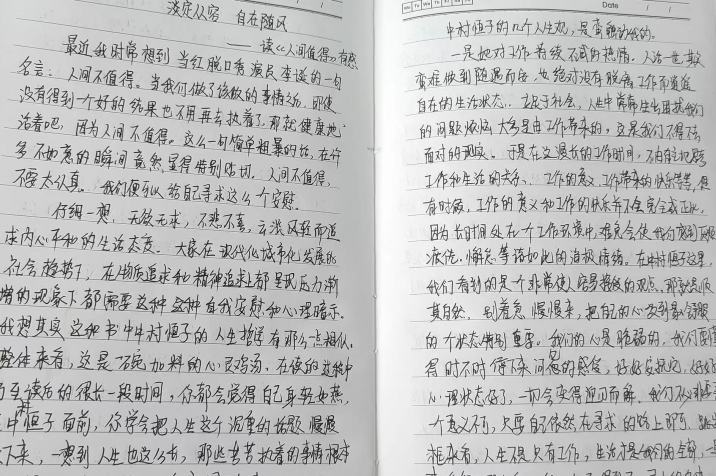 淡定从容 自在随风
——读《人间值得》有感
最近我时常想到当红脱口秀演员李诞的一句
名言：人间不值得。当我们做了该做的事情之后，即使
没有得到一个好的结果也不用再去执着了，那就健康地
活着吧，因为人间不值得。这么一句简单粗暴的话，在许
多不如意的瞬间竟然显得特别贴切。人间不值得，
不要太认真。我们便可以给自己寻求这么一个安慰。
仔细一想，无欲无求，不悲不喜，云淡风轻而追
求内心平和的生活态度。大家在现代化城市化发展的
社会趋势下，在物质追求和精神追求上都呈现压力渐
增的现象下都需要这种这种自我安慰和心理暗示。
我想其具这和书中中村恒子的人生哲学有那么点相似。
整体来看，这是一碗加料的心灵鸡汤。在读的过程中
乃至读后的很长一段时间，你都会觉得自己身轻如燕，
中村恒子面前，你学会把人生这个沉重的话题慢慢
下来，一想到人生也这么去，那些苦苦执着的事情根本
Mo Tu We Th Fr Sa Su
Date / /
中村恒子的几个人生观，是蛮触动我的。
一是她对工作持续不减的热情。人活一世，其实
蛮难做到随遇而安，也绝对没有脱离工作而逍遥
自在的生活状态。立足于社会，人生中常常生出困扰我们
的问题烦恼大多是由工作带来的，这是我们不得不去
面对的现实。于是在这漫长的工作时间，不由自主地思考
工作和生活的关系、工作的意义、工作带来的快乐等等，但
有时候，工作的意义和工作的快乐并不会完全成正比，
因为长时间处在一个工作环境中，难免会使我们感到
疲倦、懈怠等诸如此的消极情绪。在中村恒子这里，
我们看到的是一个非常使人容易接纳的观点，那就是顺
其自然，别着急慢慢来，把自己的心放到最合适
的个状态特别重要。我们的心是脆弱的，我们要
得时不时停下来问问您的感受，好好安抚它，好好
心理状态好了，一切会变得迎刃而解，我们不必非
一个意义不可，只要自己依然在寻求的路上即可。
来看，人生不是只有工作，生活才是我们的全部，